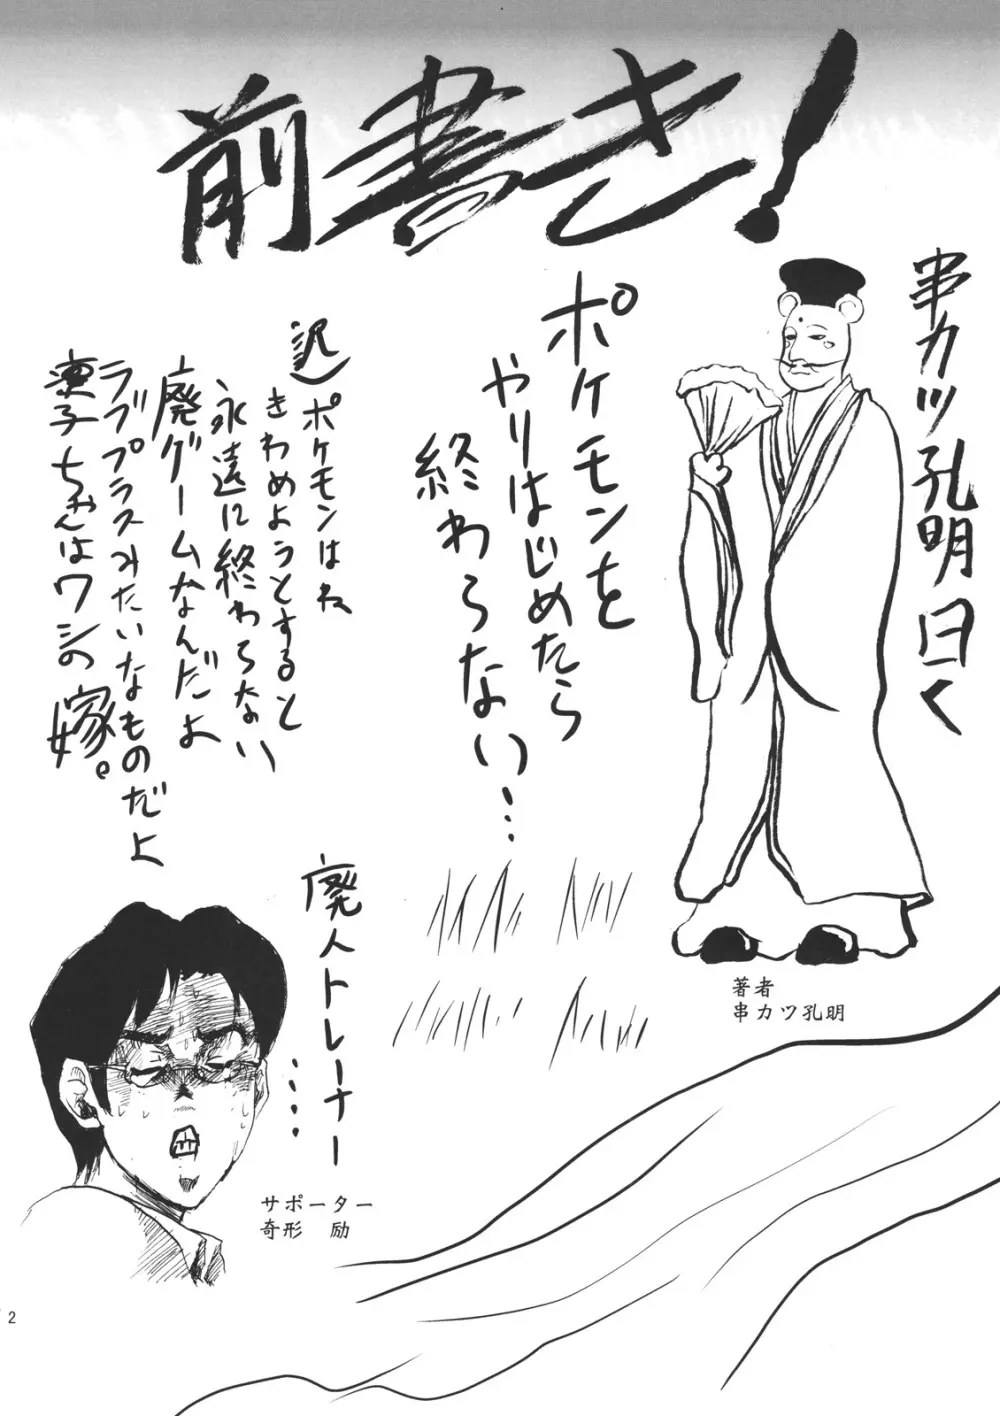 前書き!
串カツ孔明曰く
ポケモンを
やりはじめたら
終わらない…
訳)ポケモンはね
きわめようとすると
永遠に終わらない
廃ゲームなんだよ
ラブプラスみたいなものだよ
凛子ちゃんはワシの嫁。
著者
串カツ孔明
廃人トレーナー…
サポーター
奇形 励
2